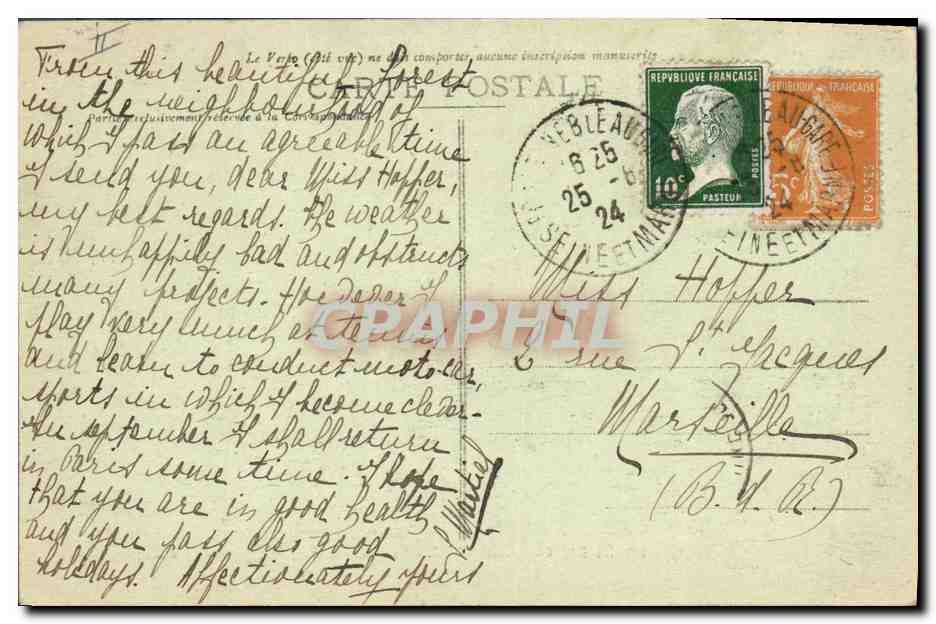 II
Le Verso (côté vue) ne doit comporter aucune inscription manuscrite
From this beautiful forest
CARTE POSTALE
in the neighbourhood of
Partie exclusivement réservée à la Correspondance
which I pass an agreeable time
I send you, dear Miss Hoffer,
my best regards. The weather
is unhappily bad and obstructs
many projects. However I
play very much at tennis
and learn to conduct moto-car,
sports in which I become clever-
In september I shall return
in Paris some time. I hope
that you are in good health
and you pass also good
holidays. Affectionately yours
Martiel
REPVBLIQVE FRANÇAISE
10c
POSTES
PASTEUR
REPUBLIQUE FRANÇAISE
5c
POSTES
6 25
25 -6
24
SEINE ET MARNE
EAU-GARE
24
INE ET MA
CPAPHIL
Miss Hoffer
2 rue St Jacques
Marseille
(B. d. R.)